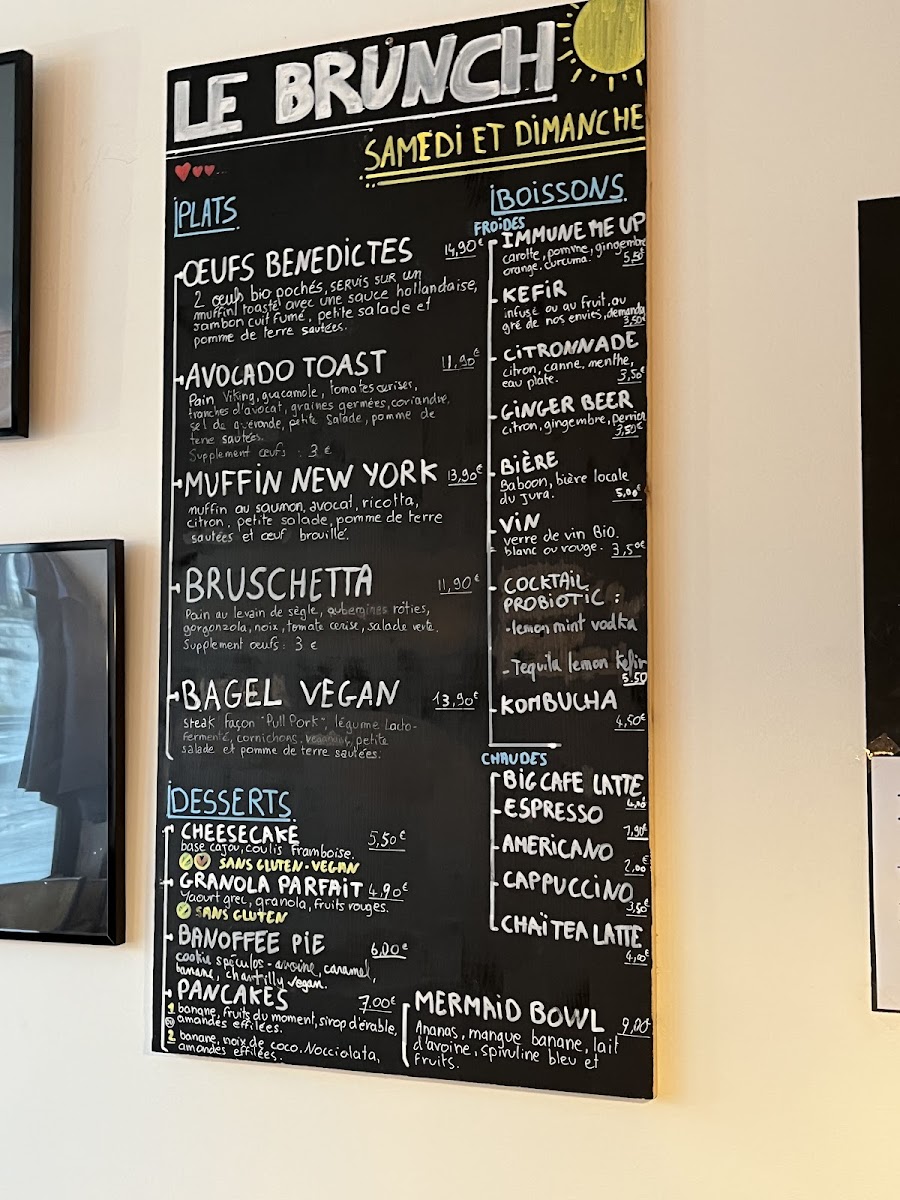 LE BRUNCH
SAMEDI ET DIMANCHE
PLATS
ŒUFS BENEDICTES 14,90€
2 œufs bio pochés, servis sur un
muffin toasté avec une sauce hollandaise,
jambon cuit fumé, petite salade et
pomme de terre sautées.
AVOCADO TOAST 11,90€
Pain Viking, guacamole, tomates cerises,
tranches d'avocat, graines germées, coriandre,
sel de guérande, petite salade, pomme de
terre sautées.
Supplement œufs : 3 €
MUFFIN NEW YORK 13,90€
muffin au saumon, avocat, ricotta,
citron, petite salade, pomme de terre
sautées et œuf brouillé.
BRUSCHETTA 11,90€
Pain au levain de sègle, aubergines rôties,
gorgonzola, noix, tomate cerise, salade verte.
Supplement oeufs : 3 €
BAGEL VEGAN 13,90€
Steak façon "Pull Pork", légume lacto-
fermenté, cornichons, petite
salade et pomme de terre sautées.
DESSERTS
CHEESECAKE 5,50€
base cajou, coulis framboise.
SANS GLUTEN - VEGAN
GRANOLA PARFAIT 4,90€
Yaourt grec, granola, fruits rouges.
SANS GLUTEN
BANOFFEE PIE 6,00€
cookie spéculos - avoine, caramel,
banane, chantilly vegan.
PANCAKES 7.00€
1 banane, fruits du moment, sirop d'érable,
amandes effilées.
2 banane, noix de coco, Nocciolata,
amandes effilées.
BOISSONS
FROIDES
IMMUNE ME UP
carotte, pomme, gingembre
orange, curcuma. 5,50€
KEFIR
infusé ou au fruit, au
gré de nos envies, demandez
3,50€
CITRONNADE
citron, canne, menthe,
eau plate. 3,50€
GINGER BEER
citron, gingembre, perrier
3,50€
BIÈRE
Baboon, bière locale
du Jura. 5,00€
VIN
verre de vin Bio.
blanc ou rouge. 3,50€
COCKTAIL
PROBIOTIC :
- lemon mint vodka
- Tequila lemon kefir
5.50
KOMBUCHA
4,50€
CHAUDES
BIG CAFE LATTE
ESPRESSO
1,90€
AMERICANO
2,00€
CAPPUCCINO
3,50€
CHAÏ TEA LATTE
4,00€
MERMAID BOWL 9,00
Ananas, mangue banane, lait
d'avoine, spiruline bleu et
fruits.